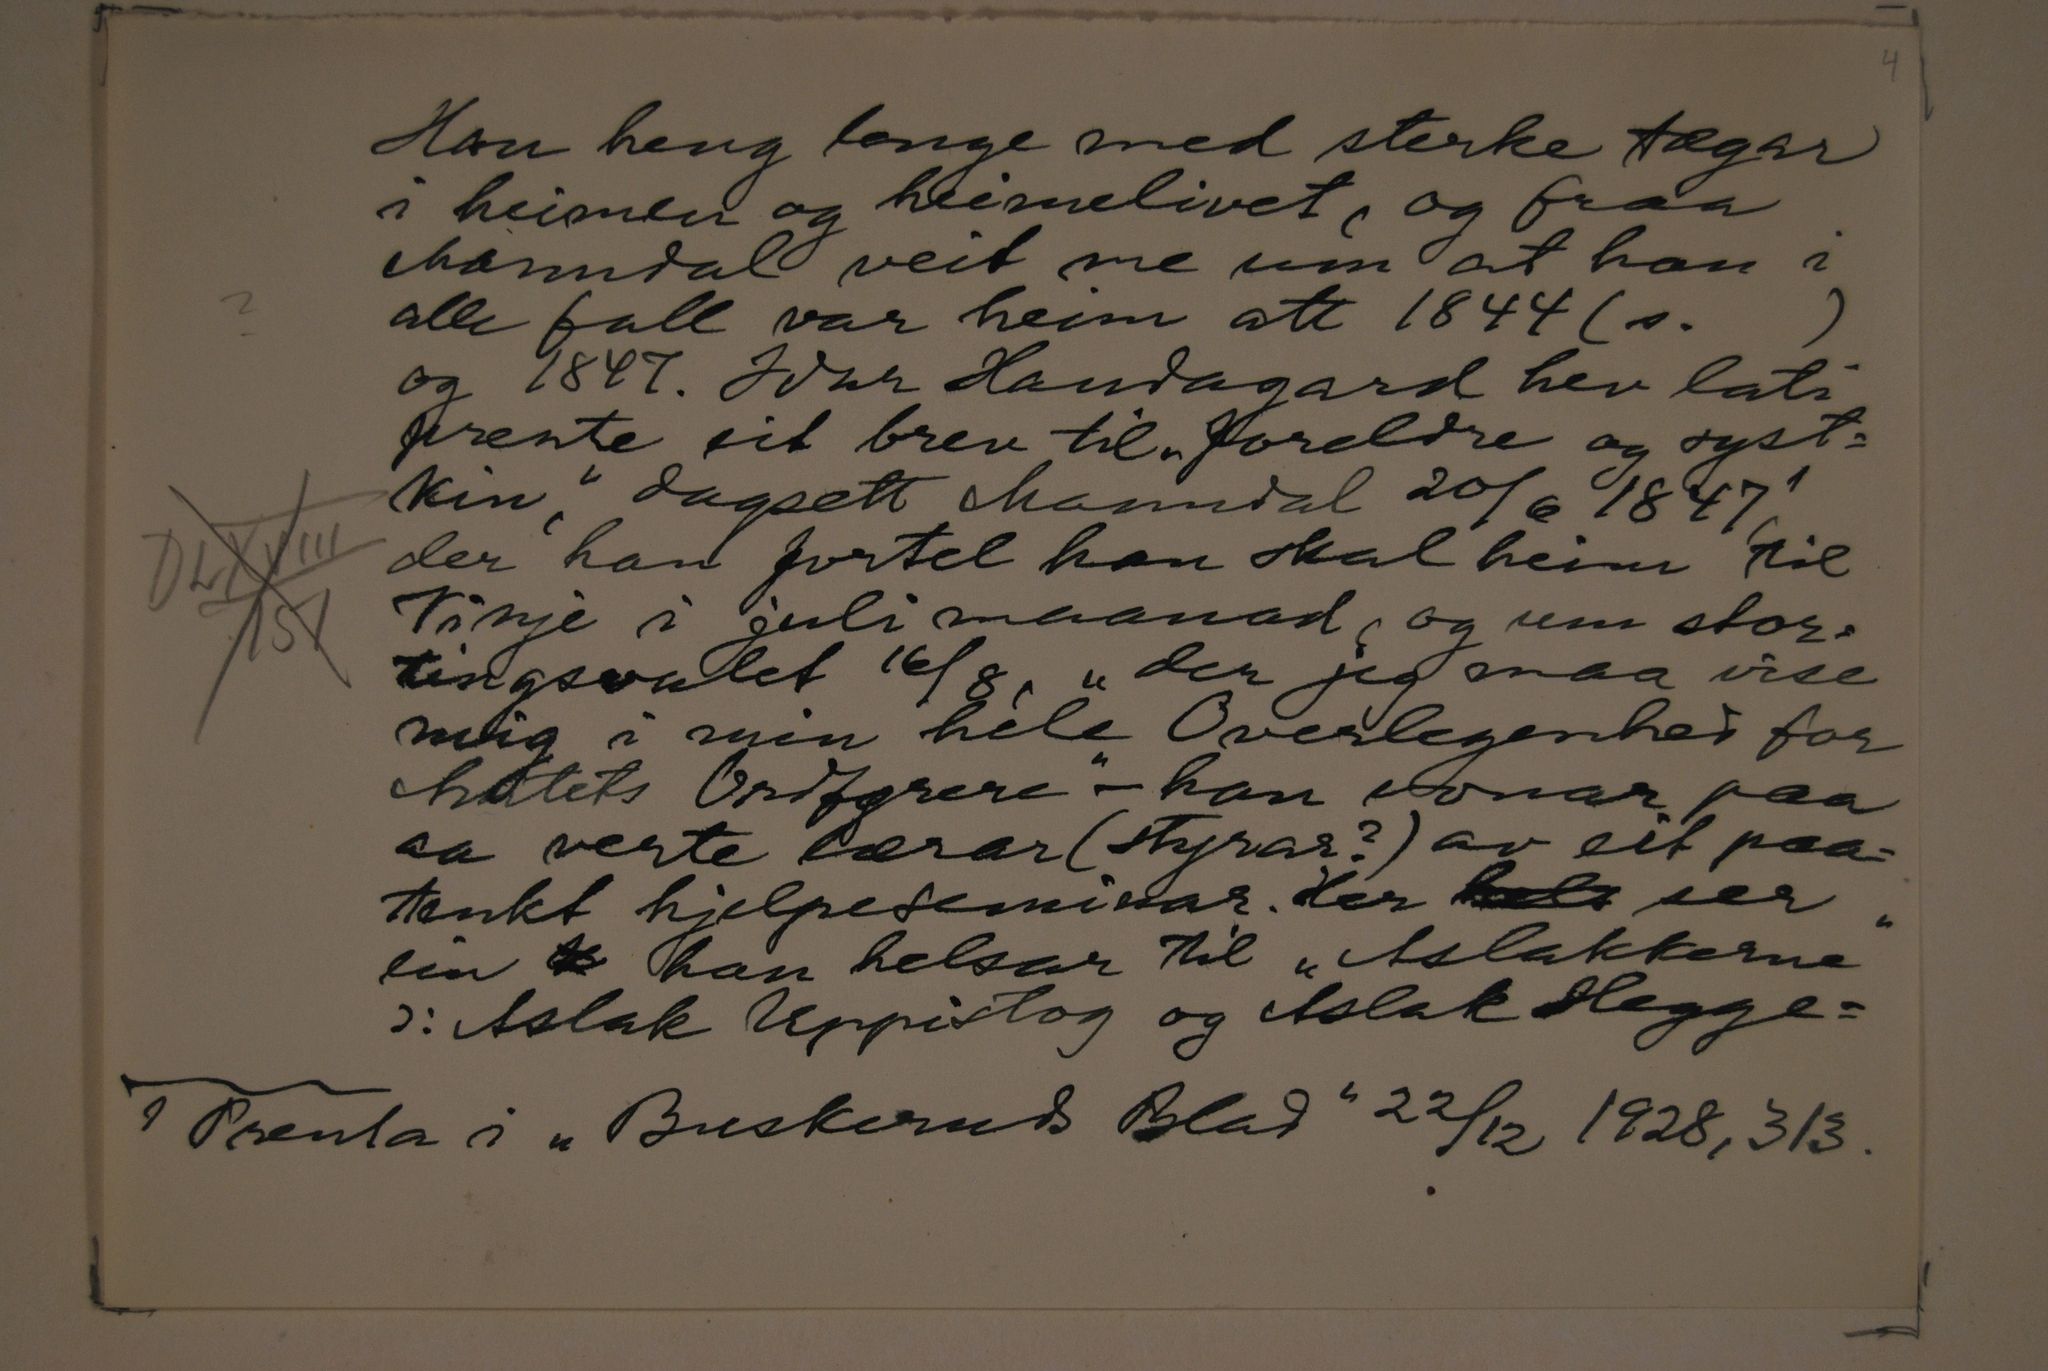 4
Han heng lenge med sterke tægar
i heimen og heimelivet, og fraa
Manndal veit me um at han i
alle fall var heim att 1844 (s. )
?
og 1847. Idar Handagard hev lati
prente eit brev til „foreldre og syst-
kin“, dagsett Manndal 20/6 1847,¹
DLXVIII
151
der han fortel han skal heim til
Vinje i juli maanad, og um stor-
tingsvalet 16/8, „der jeg maa vise
mig i min hele Overlegenhed for
Ordførere“ – han vonar paa
aa verte lærar (styrar?) av eit paa-
tenkt hjelpeseminar. Her ser
ein han helsar til „Aslakkerne“
ɔ: Aslak Uppistog og Aslak Hegge-
¹ Prenta i „Buskeruds Blad“ 22/12 1928, 313.